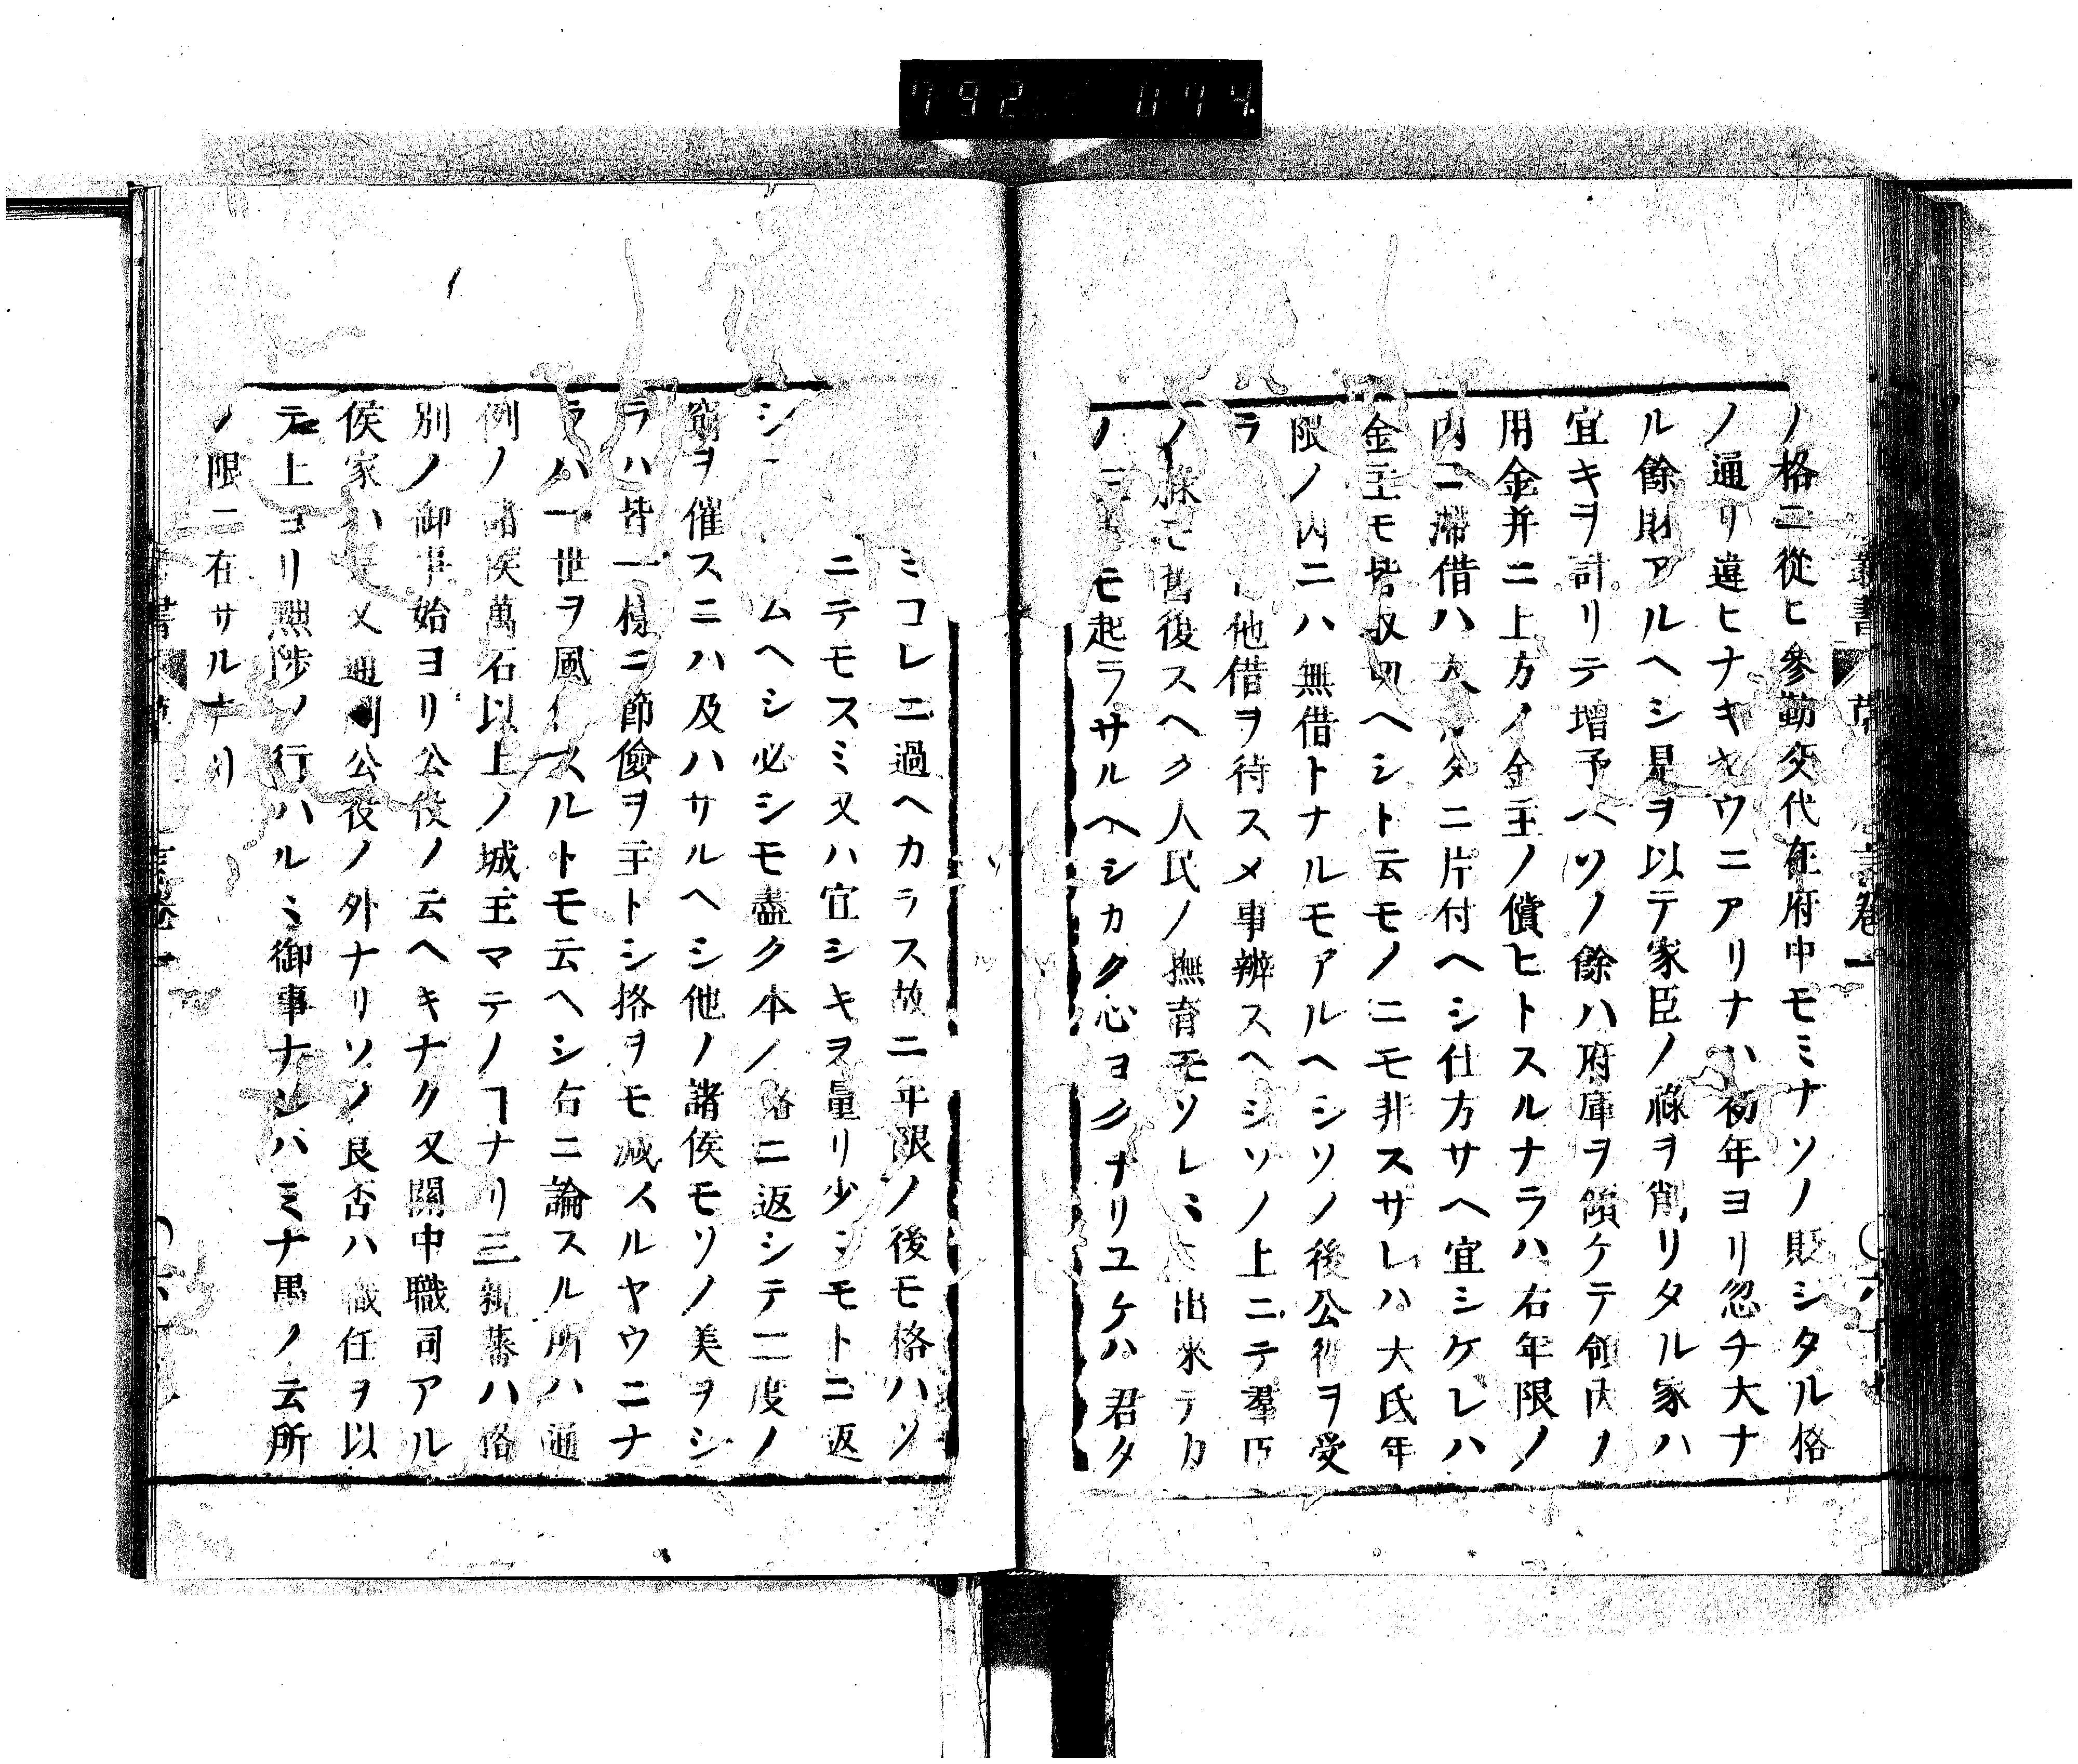 792 074
ノ格ニ從ヒ參勤交代在府中モミナソノ貶シタル格
ノ通リ違ヒナキヤウニアリナハ初年ヨリ忽チ大ナ
ル餘財アルヘシ是ヲ以テ家臣ノ祿ヲ削リタル家ハ
宜キヲ計リテ增予ヘソノ餘ハ府庫ヲ傾ケテ領内ノ
用金并ニ上方ノ金主ノ償ヒトスルナラハ右年限ノ
内ニ滯借ハ大ハタニ片付ヘシ仕方サヘ宜シケレハ
金主モ皆収切ヘシト云モノニモ非スサレハ大氐年
限ノ内ニハ無借トナルモアルヘシソノ後公役ヲ受
ラ 他借ヲ待スメ事辨スヘシソノ上ニテ羣臣
ノ祿モ舊復スヘク人民ノ撫育モソレミ 出來テカ
ノ モ起ラサルヘシカク心ヨクナリユケハ君タ
ミコレニ過ヘカラス故ニ年限ノ後モ格ハソ
ニテモスミ又ハ宜シキヲ量リ少シモトニ返
シ ムヘシ必シモ盡ク本ノ格ニ返シテ二度ノ
窮ヲ催スニハ及ハサルヘシ他ノ諸侯モソノ美ヲシ
ラハ皆一樣ニ節儉ヲ主トシ格ヲモ減スルヤウニナ
ラハ一世ヲ風化スルトモ云ヘシ右ニ論スル所ハ通
例ノ諸侯萬石以上ノ城主マテノヿナリ三親藩ハ格
別ノ御事始ヨリ公役ノ云ヘキナク又關中職司アル
侯家ハ是又通例公役ノ外ナリソノ良否ハ職任ヲ以
テ上ヨリ黜陟ノ行ハルミ御事ナンハミナ愚ノ云所
ノ限ニ在サルナリ